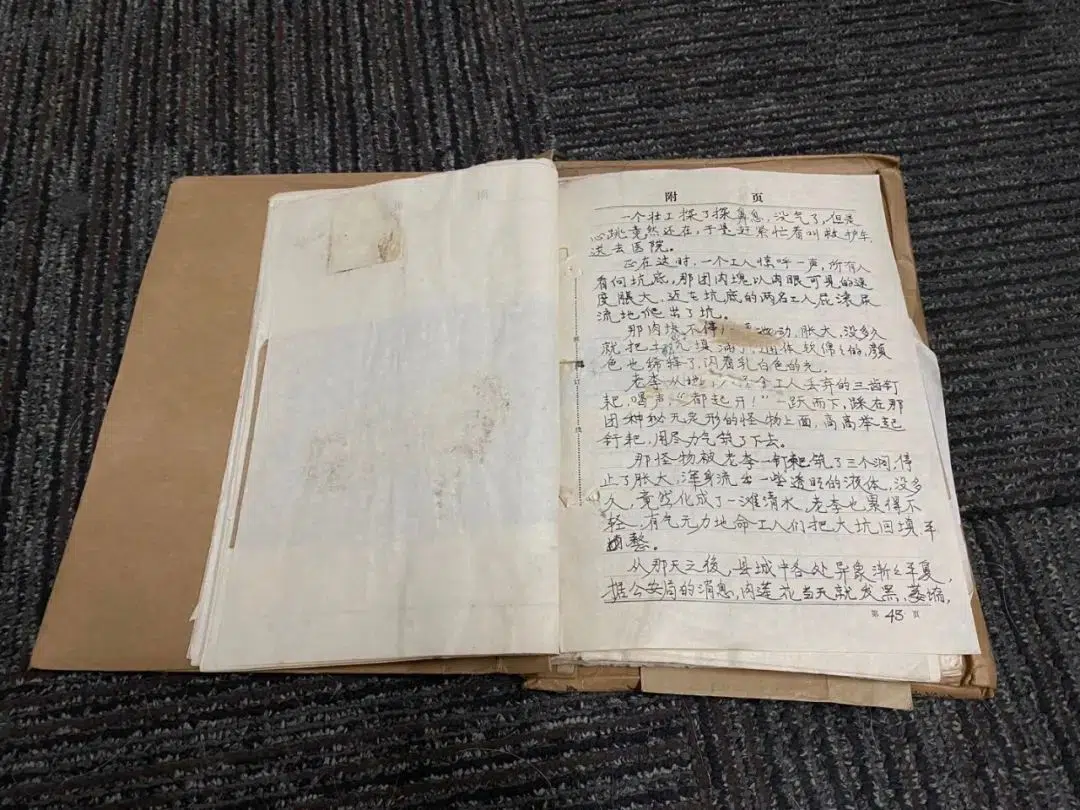 附 页
一个壮工探了探鼻息,没气了,但是
心跳竟然还在,于是赶紧忙着叫救护车
送去医院。
正在这时,一个工人惊呼一声,所有人
看向坑底,那团肉块以肉眼可见的速
度胀大,近在坑底的两名工人屁滚尿
流地爬出了坑。
那肉块不停 动,胀大,没多久
就把土坑填满了, 体软偶的,颜
色也稀释了,闪着乳白色的光。
老李从地 个工人丢弃的三齿钉
耙,喝声“都起开!”一跃而下,踩在那
团神秘无定形的怪物上面,高高举起
钉耙,用尽力气筑了下去。
那怪物被老李一钉耙筑了三个洞,停
止了胀大,浑身流出一些透明的液体,没多
久,竟然化成了一滩清水,老李也累得不
轻,有气无力地命工人们把大坑回填平
整。
从那天之後,县城中各处异象渐々平复,
据公安局的消息,肉莲花当天就发黑,萎缩,
第 43 页